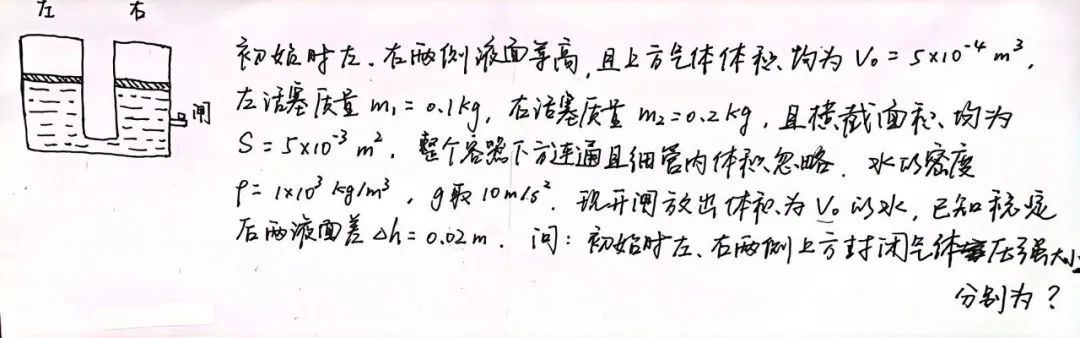 左 右
闸
初始时左、右两侧液面等高,且上方气体体积均为 V₀ = 5×10⁻⁴ m³,
左活塞质量 m₁ = 0.1kg, 右活塞质量 m₂ = 0.2kg, 且横截面积均为
S = 5×10⁻³ m², 整个容器下方连通且细管内体积忽略. 水的密度
ρ = 1×10³ kg/m³, g取10m/s². 现开闸放出体积为 V₀ 的水, 已知稳定
后两液面差 Δh = 0.02m. 问: 初始时左、右两侧上方封闭气体压强大小
分别为?